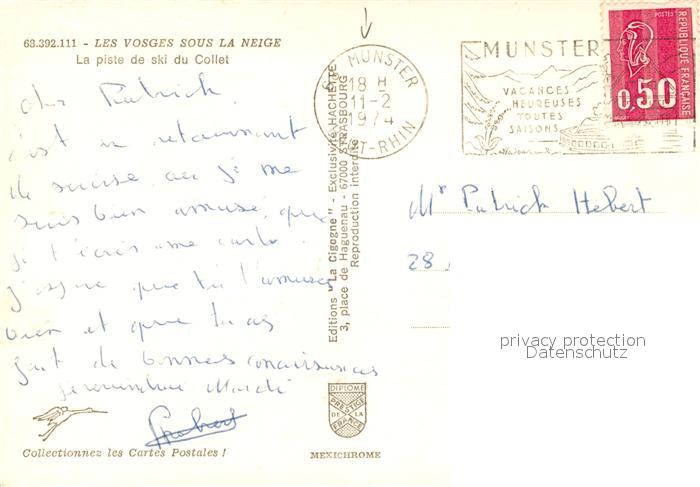 68.392.111 - LES VOSGES SOUS LA NEIGE
La piste de ski du Collet
Cher Patrick
c'est en retournant
de suisse ou je me
suis bien amusé, que
je t'écris une carte.
J'espère que tu t'amuses
bien et que tu as
fait de bonnes connaissances
Je reviendrai Mardi
Collectionnez les Cartes Postales !
Editions "La Cigogne" - Exclusivité HACHETTE
3, place de Haguenau - 67000 STRASBOURG
Reproduction interdite
DIPLOME
PRESTIGE
DE LA
FRANCE
MEXICHROME
68 MUNSTER
18 H
11-2
1974
HT-RHIN
MUNSTER
VACANCES
HEUREUSES
TOUTES
SAISONS
POSTES
REPUBLIQUE FRANÇAISE
0,50
Mr Patrick Hebert
28
privacy protection
Datenschutz